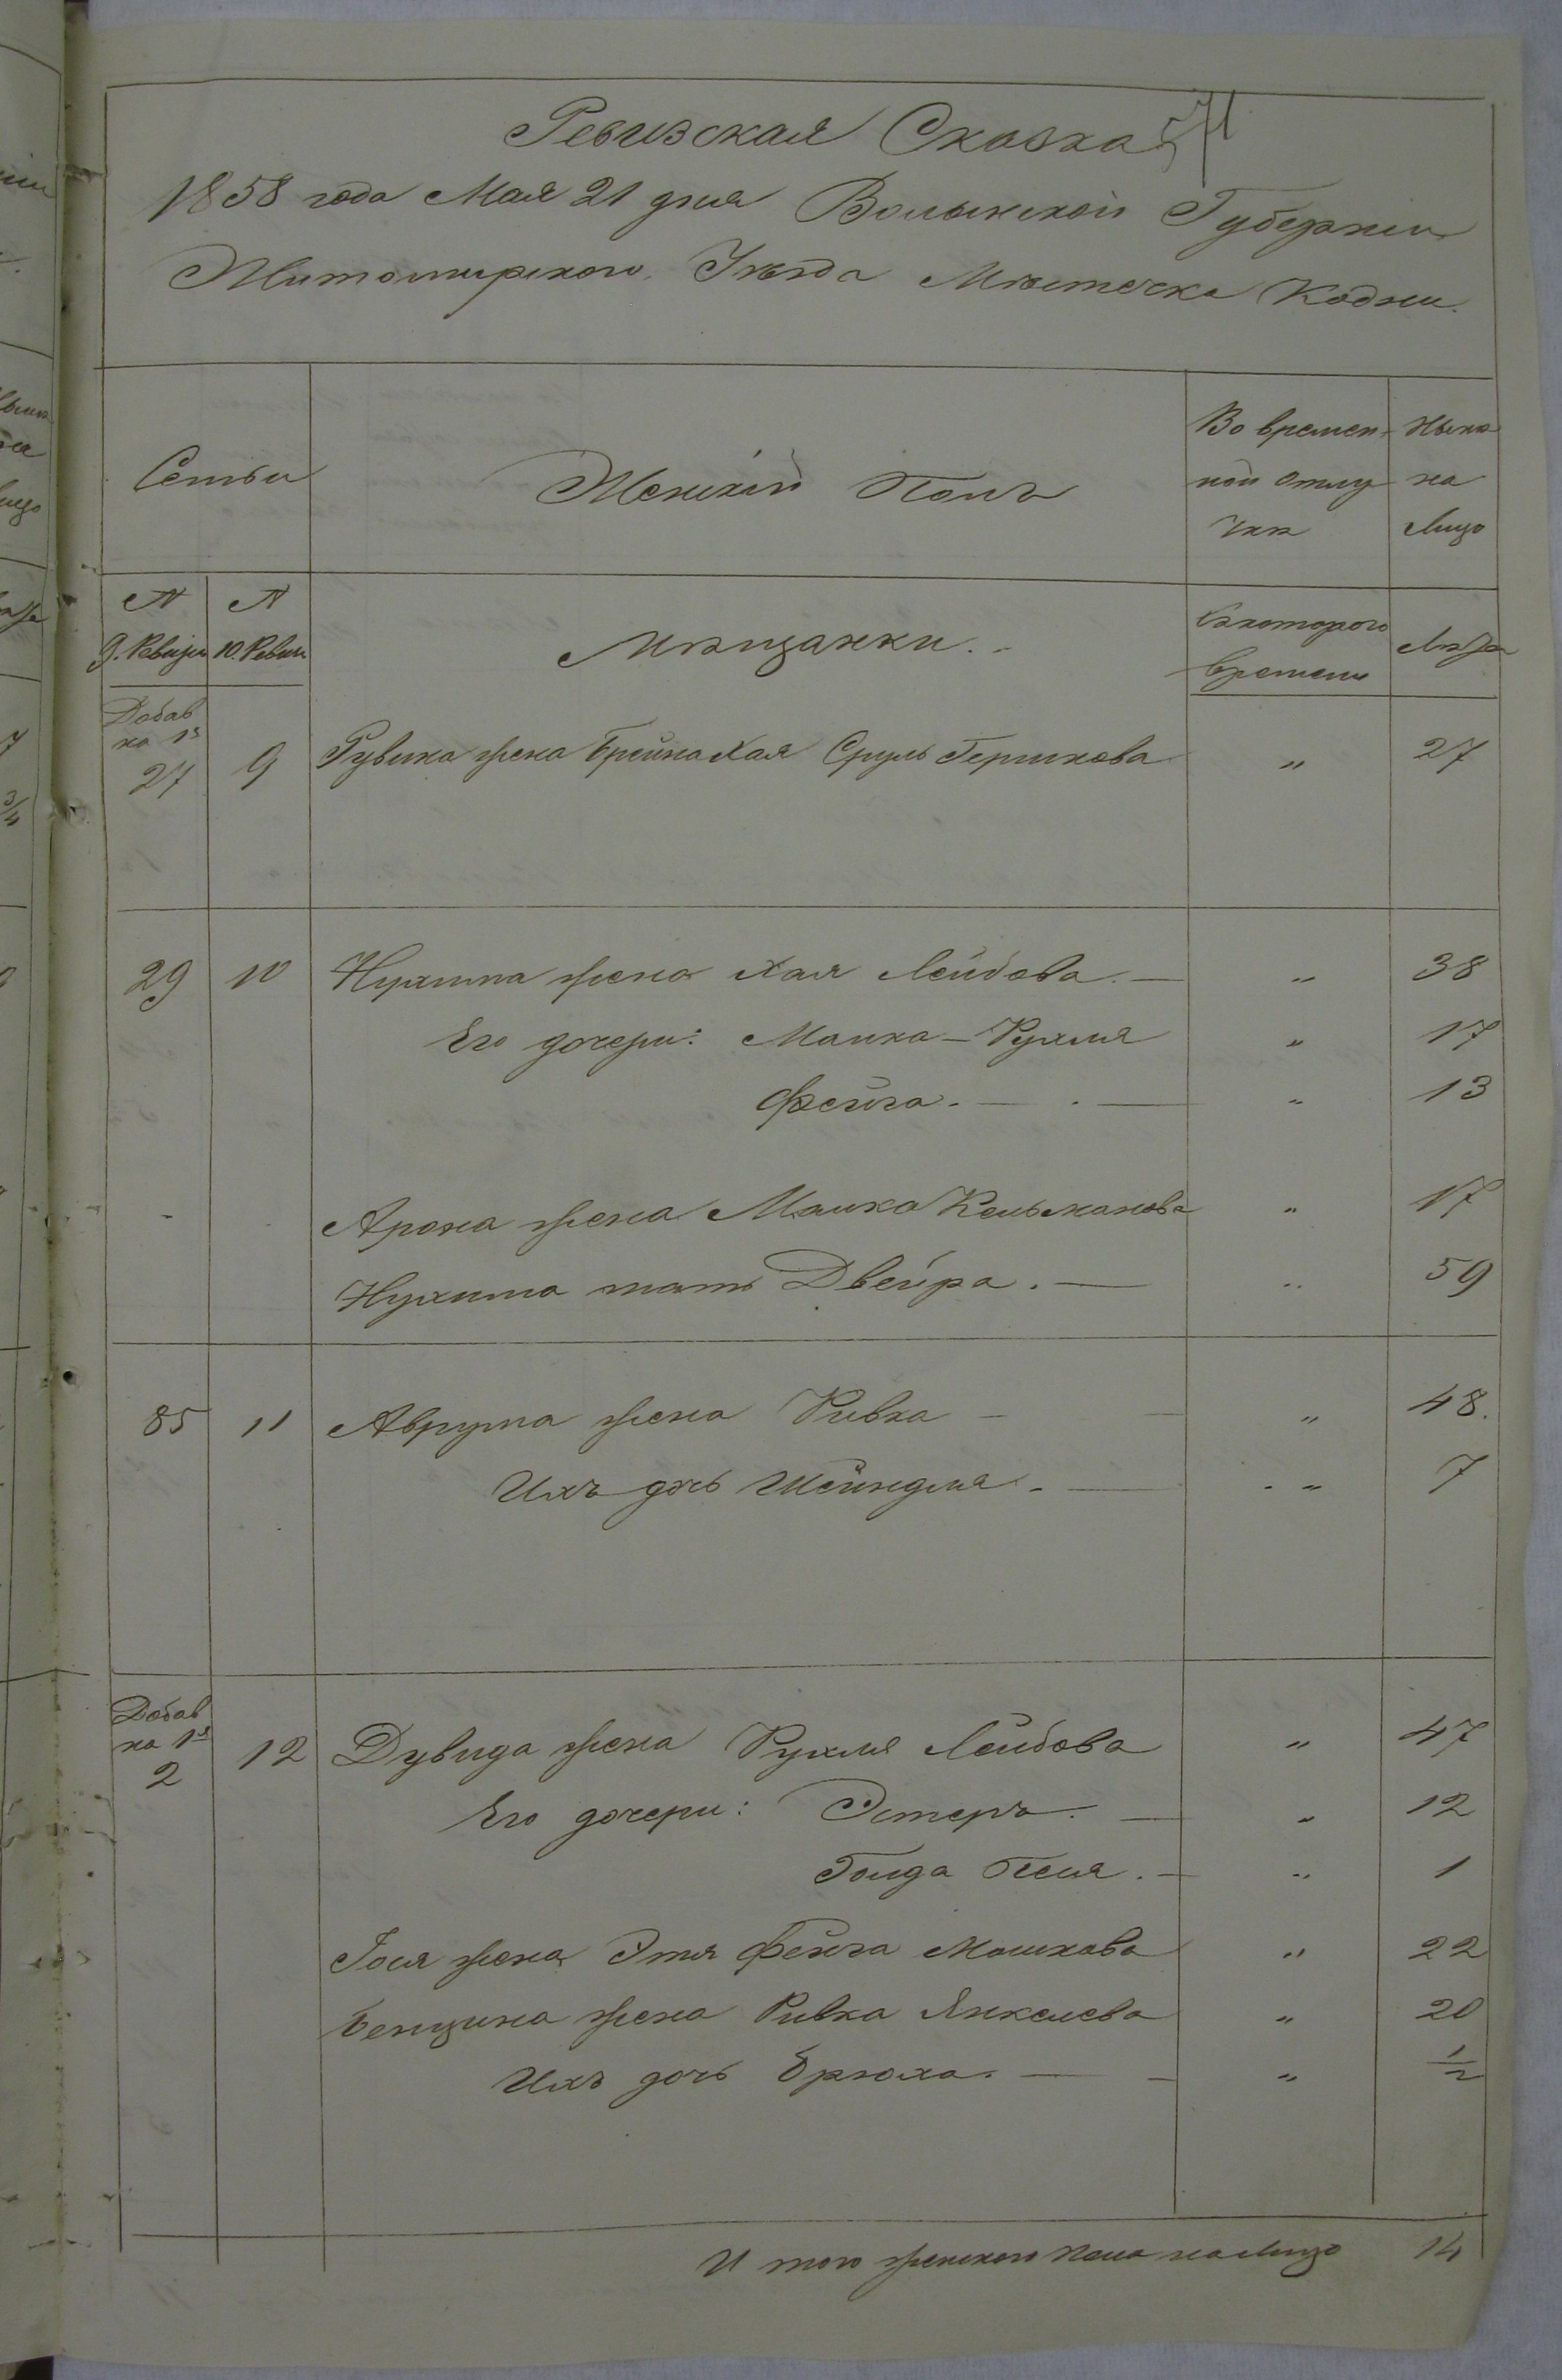 Ревизская Сказка 571
1858 года Мая 21 дня Волынской Губернiи
Житомирского Уѣзда Мѣстечка Кодни.
Семьи
Женскiй Полъ
Во времен-
ной отлу
чкѣ
Нынѣ
на
Лицо
N
9. Ревизiи
N
10. Ревизiи
Мѣщанки.
Съ котораго
времени
Лѣта
Добав
ка 1я
27 9 Рувина жена Брейна Хая Сруль Гершкова " 27
29 10 Нухима жена Хая Лейбова. — " 38
Его дочери: Малка - Рухля " 17
Фейга. — " 13
Арона жена Малка Кельманова " 17
Нухима мать Двейра. — " 59
85 11 Аврума жена Ривка — " 48.
Ихъ дочь Шейндля. — " 7
Добав
ка 1я
2 12 Дувида жена Рухля Лейбова " 47
Его дочери: Эстеръ. — " 12
Голда Песя. — " 1
Iося жена Этя Фейга Мошкова " 22
Бенциона жена Ривка Янкелева " 20
Ихъ дочь Брюха. — " 1/2
И того женского пола на лицо 14